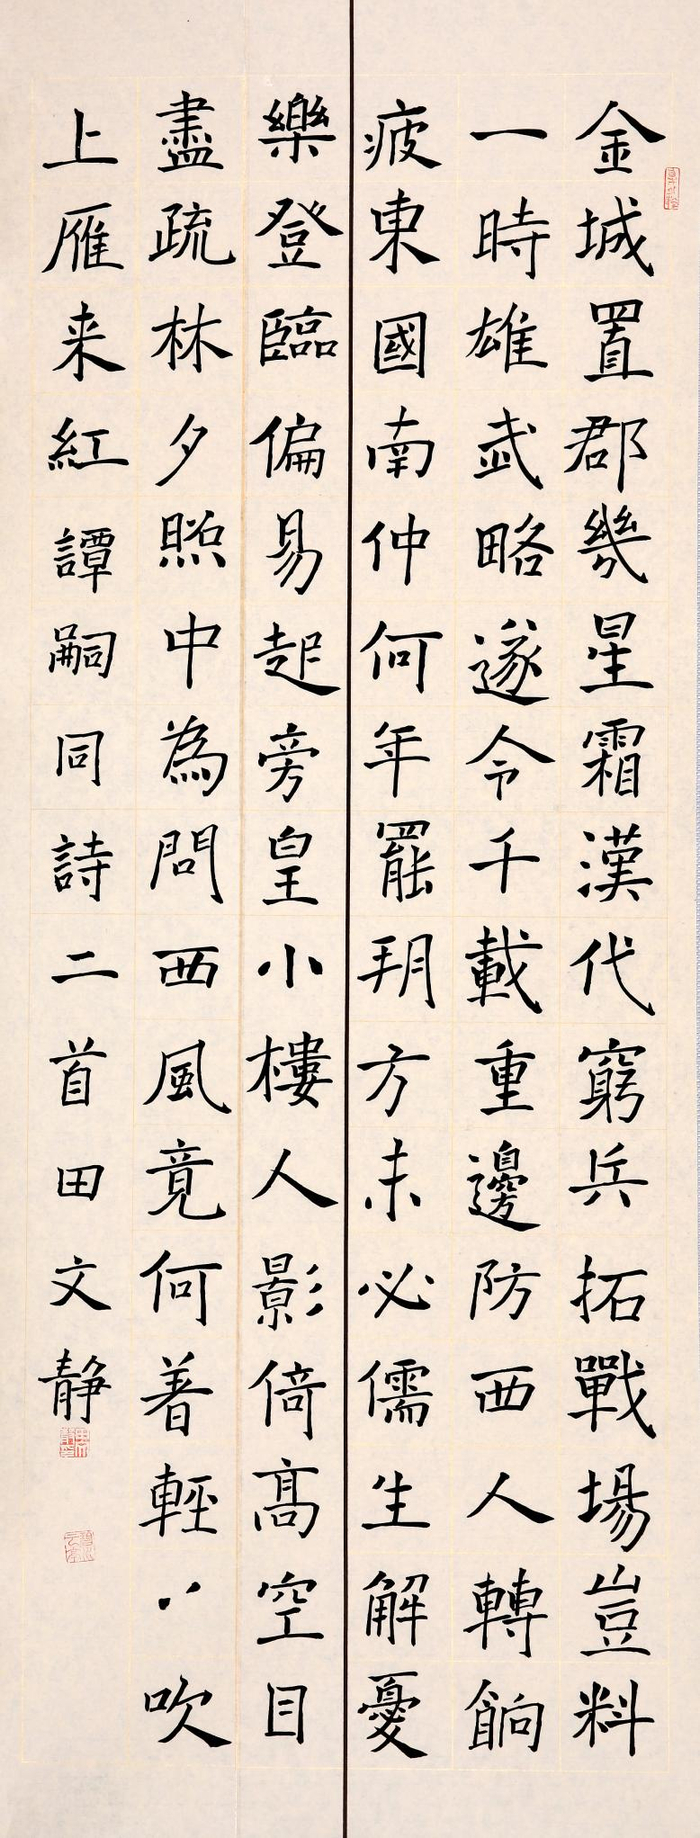 金城置郡幾星霜漢代窮兵拓戰場豈料
一時雄武略遂令千載重邊防西人轉餉
疲東國南仲何年罷朔方未必儒生解憂
樂登臨偏易起旁皇小樓人影倚高空目
盡疏林夕照中為問西風竟何著輕〻吹
上雁来紅譚嗣同詩二首田文静